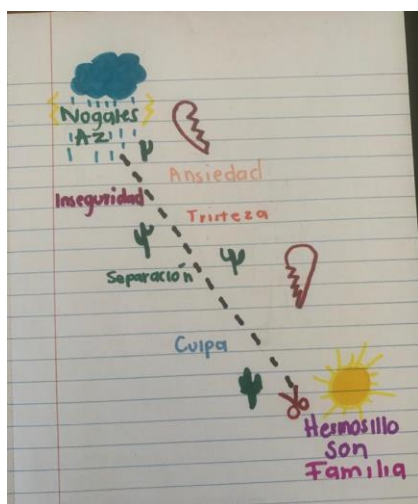 Nogales
AZ
Ansiedad
Inseguridad
Tristeza
Separación
Culpa
Hermosillo
Son
Familia